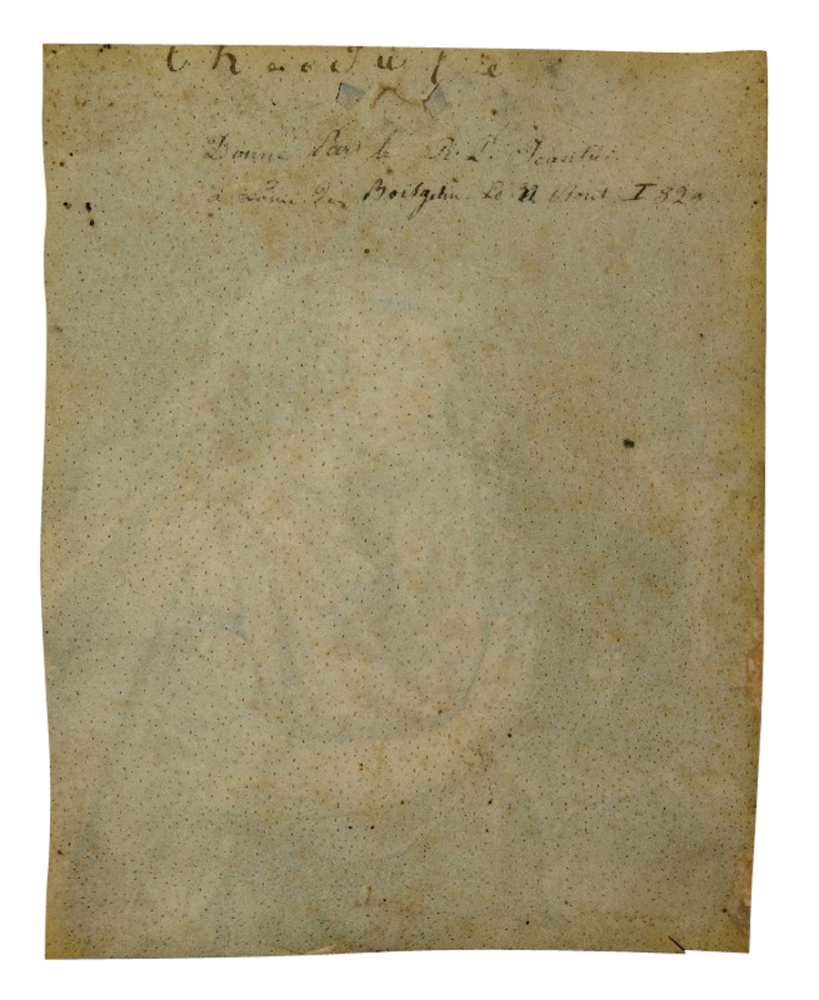 theodule
Donné Par le R. P. Jeantier
à Louis de Boisgelin Le 22 Aout 182